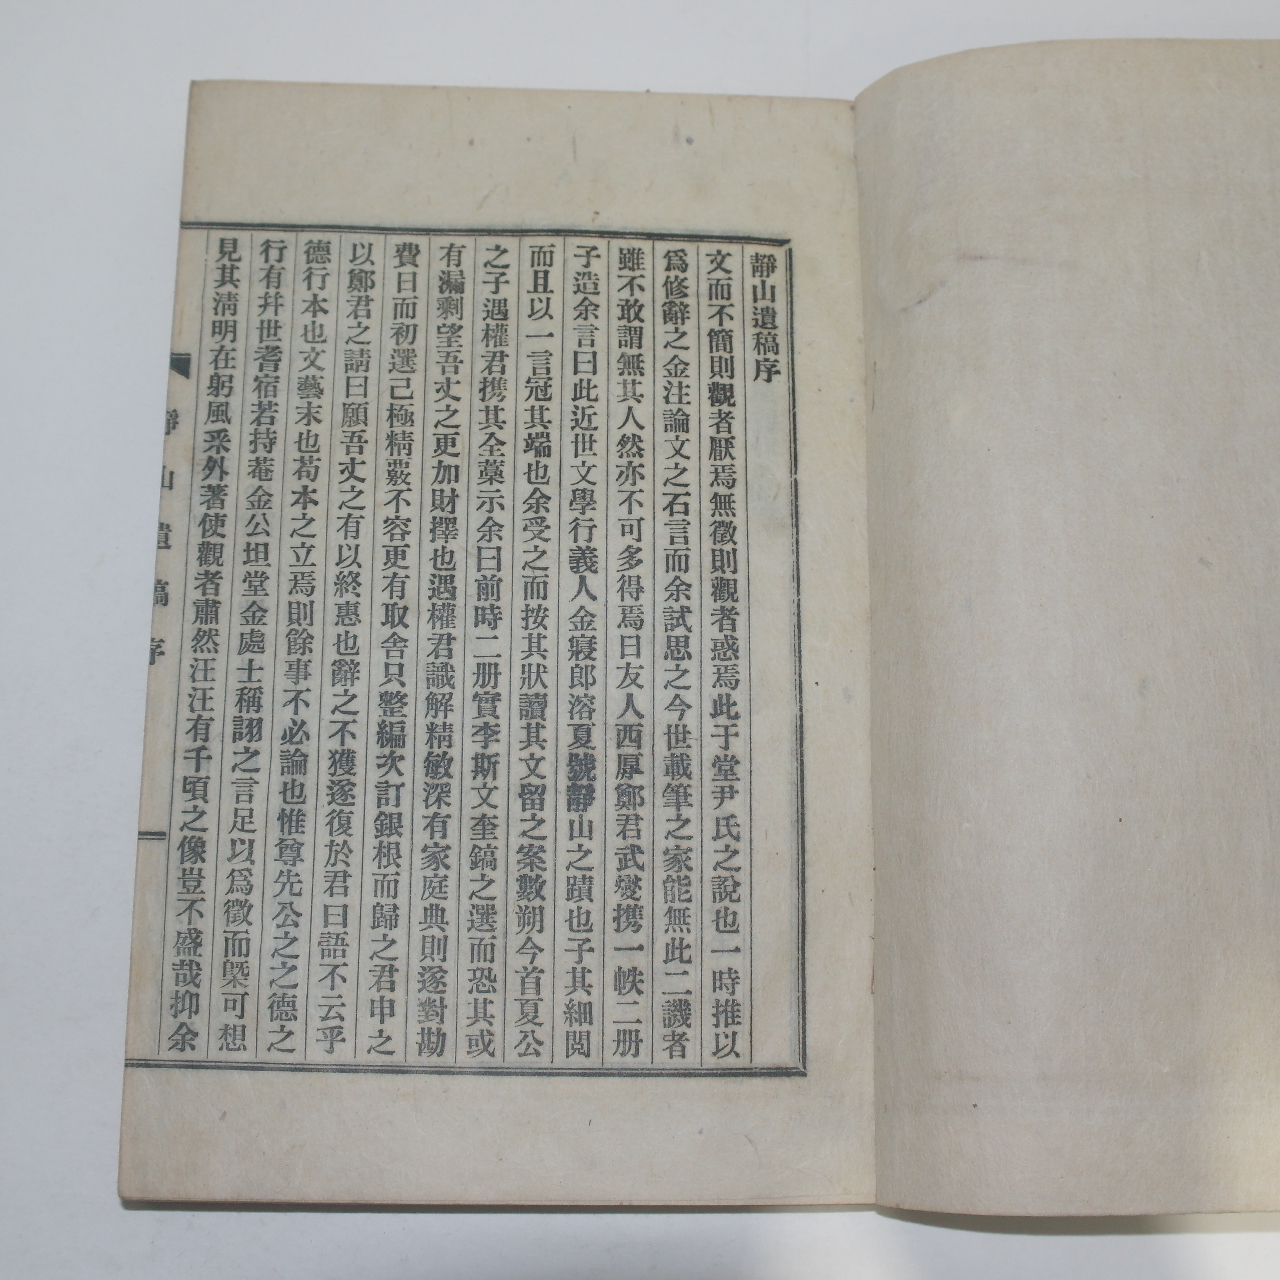 靜山遺稿序
文而不簡則觀者厭焉無徵則觀者惑焉此于堂尹氏之說也一時推以
爲修辭之金注論文之石言而余試思之今世載筆之家能無此二譏者
雖不敢謂無其人然亦不可多得焉日友人西厚鄭君武燮携一帙二册
子造余言曰此近世文學行義人金寢郎溶夏號靜山之蹟也子其細閱
而且以一言冠其端也余受之而按其狀讀其文留之案數朔今首夏公
之子遇權君携其全藁示余曰前時二册實李斯文奎鎬之選而恐其或
有漏剩望吾丈之更加財擇也遇權君識解精敏深有家庭典則遂對勘
費日而初選己極精覈不容更有取舍只整編次訂銀根而歸之君申之
以鄭君之請曰願吾丈之有以終惠也辭之不獲遂復於君曰語不云乎
德行本也文藝末也苟本之立焉則餘事不必論也惟尊先公之之德之
行有幷世耆宿若持菴金公坦堂金處士稱詡之言足以爲徵而槩可想
見其淸明在躬風采外著使觀者肅然汪汪有千頃之像豈不盛哉抑余
靜山遺稿序